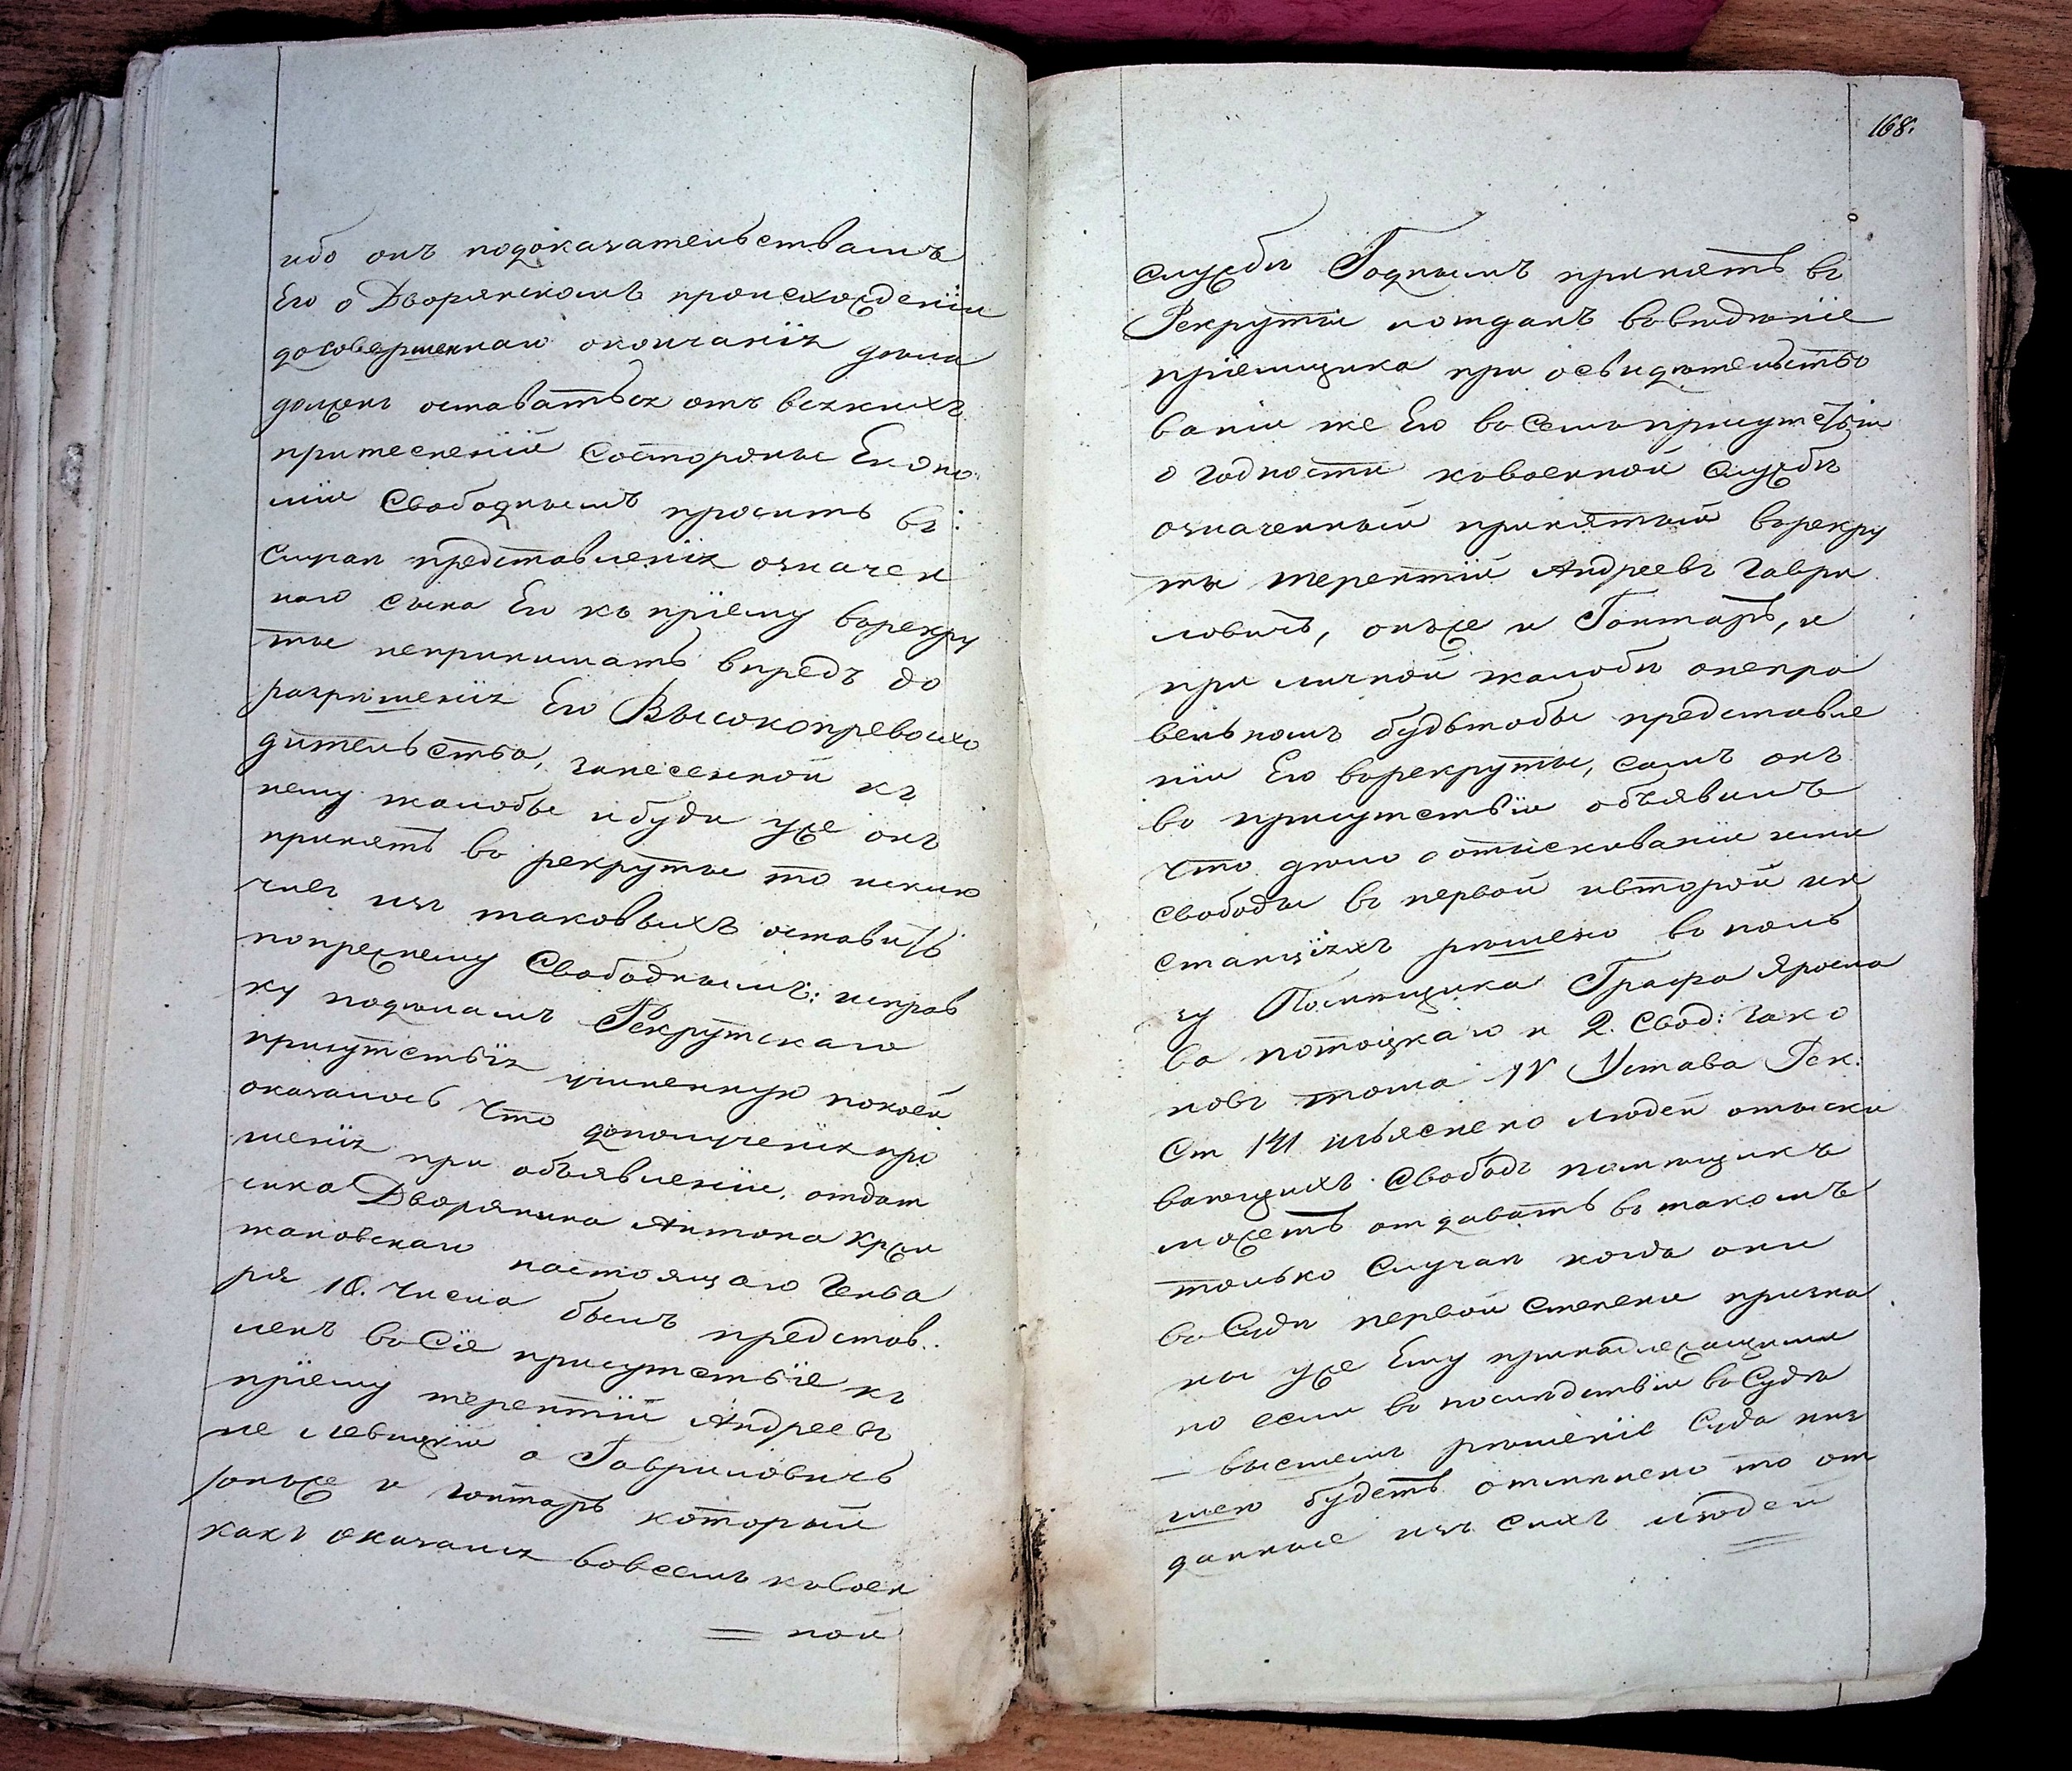 ибо онъ подоказательствамъ
Его о Дворянскомъ происхожденіи
досовершеннаго окончанія дѣла
долженъ оставаться отъ всякихъ
притесненій Состороны Еконо
міи Свободнымъ проситъ въ:
случаѣ представленія означен
наго сына Его къ пріему врекру
ты непринимать впредъ до
разрѣшенія Его Высокопревосхо
дительства, занесенной къ
нему жалобы и буди уже онъ
принятъ во рекруты то исклю
чивъ изъ таковыхъ оставить
попрежнему Свободнымъ: исправ
ку подѣламъ Рекрутскаго
присутствія учиненную покоей
оказалось что дополученія про
шенія при объявленіи, отдат
чика Дворянина Антона Кржи
жановскаго настоящаго Генва
ря 10. числа былъ представ..
ленъ во Сіе присутствіе къ
пріему терентій Андреевъ
не левицкій а Гавриловичь
онъже и гонтарь который
какъ оказался вовсемъ квоен
ной
168.
службѣ Годнымъ принятъ въ
Рекруты иотданъ вовѣдѣніе
пріемщика при освидѣтельство
ваніи же Его во Семъ присутствіи
о годности ковоенной службѣ
означенный принятый врекру
ты терентій Андреевъ Гаври
ловичь, онъже и Гонтарь, и
при личной жалобѣ онепра
вельномъ будьтобы представле
ніи Его врекруты, самъ онъ
во присутствіи объявилъ
что дѣло о отыскиваніи ими
свободы въ первой ивторой ин
станціяхъ рѣшено во поль
зу Помѣщика Графа Яросла
ва потоцкаго и 2. Свод: зако
новъ тома IV Устава Рек:
Ст 141 изъяснено людей отыски
вающихъ свободъ помѣщикъ
можетъ отдавать во такомъ
только Случаѣ когда они
во Судѣ первой степени призна
ны уже Ему принадлежащими
но если во послѣдствіи во Судѣ
высшемъ рѣшеніе Суда низ
шаго будетъ отмѣнено то от
данные изъ сихъ людей